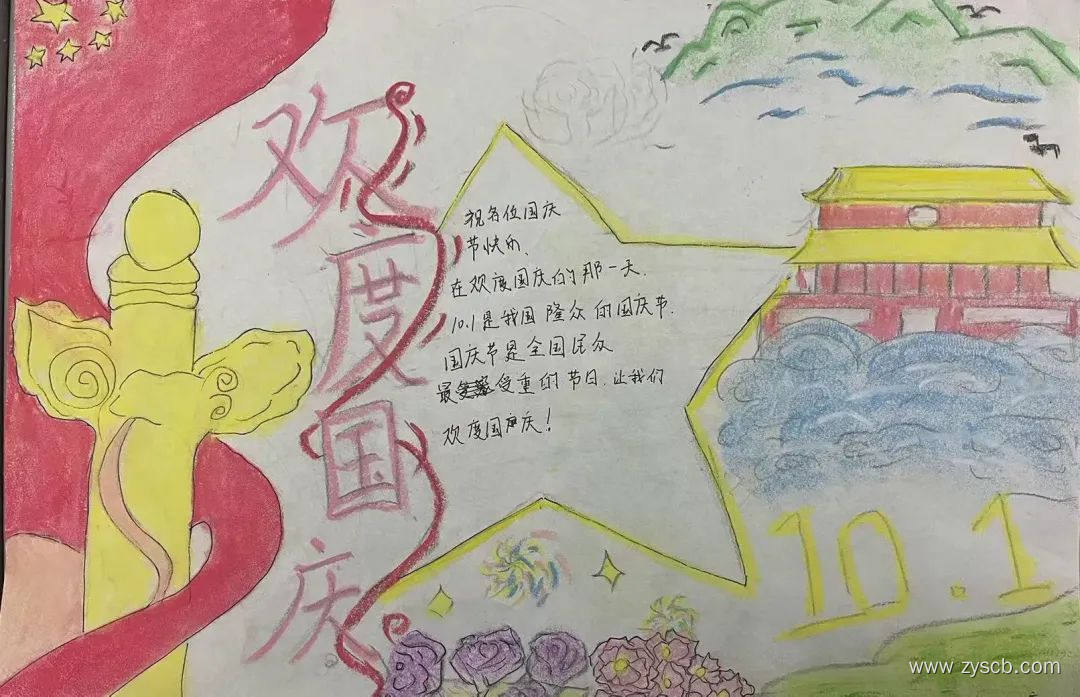 欢度国庆
祝各位国庆
节快乐、
在欢度国庆的那一天、
10.1是我国隆众的国庆节.
国庆节是全国民众
最受重的节日.让我们
欢度国庆!
10.1
www.zyscb.com